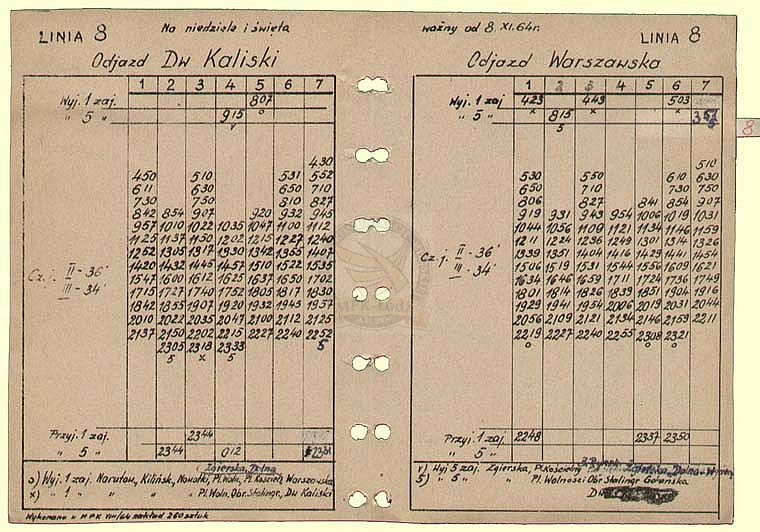 LINIA 8
Na niedziele i święta
Odjazd Dw Kaliski
1 2 3 4 5 6 7
Wyj. 1 zaj. 807
o
" 5 " 915
v
430
450 510 531 552
611 630 650 710
730 750 810 827
842 854 907 920 932 945
957 1010 1022 1035 1047 1100 1112
1125 1137 1150 1202 1215 1227 1240
1252 1305 1317 1330 1342 1355 1407
1420 1432 1445 1457 1510 1522 1535
1547 1600 1612 1625 1637 1650 1702
1715 1727 1740 1752 1805 1817 1830
1842 1855 1907 1920 1932 1945 1957
2010 2022 2035 2047 2100 2112 2125
2137 2150 2202 2215 2227 2240 2252
2305 2318 2333 5
5 x 5
Cz. j. II - 36'
III - 34'
Przyj. 1 zaj. 2344
" 5 " 2344 012
Zgierska, Dolna
o) Wyj. 1 zaj. Narutow, Kilińsk, Nowotki, Pl. Woln, Pl. Kościeln, Warszawska
x) " 1 " " " Pl. Woln. Obr. Stalingr., Dw Kaliski
Wykonano w MPK zakład 260 sztuk
ważny od 8. XI. 64r.
LINIA 8
Odjazd Warszawska
1 2 3 4 5 6 7
Wyj. 1 zaj 423 443 503
x x x
" 5 " 815 357
5 5
510
530 550 610 630
650 710 730 750
806 827 841 854 907
919 931 943 954 1006 1019 1031
1044 1056 1109 1121 1134 1146 1159
1211 1224 1236 1249 1301 1314 1326
1339 1351 1404 1416 1429 1441 1454
1506 1519 1531 1544 1556 1609 1621
1634 1646 1659 1711 1724 1736 1749
1801 1814 1826 1839 1851 1904 1916
1929 1941 1954 2006 2019 2031 2044
2056 2109 2121 2134 2146 2159 2211
2219 2227 2240 2255 2308 2321
o o o
Cz. j. II - 36'
III - 34'
Przyj. 1 zaj. 2248 2337 2350
" 5 "
v) Wyj 5 zaj. Zgierska, Pl. Kościelny
5) " 5 " " Pl. Wolności Obr. Stalingr Gdańska
8